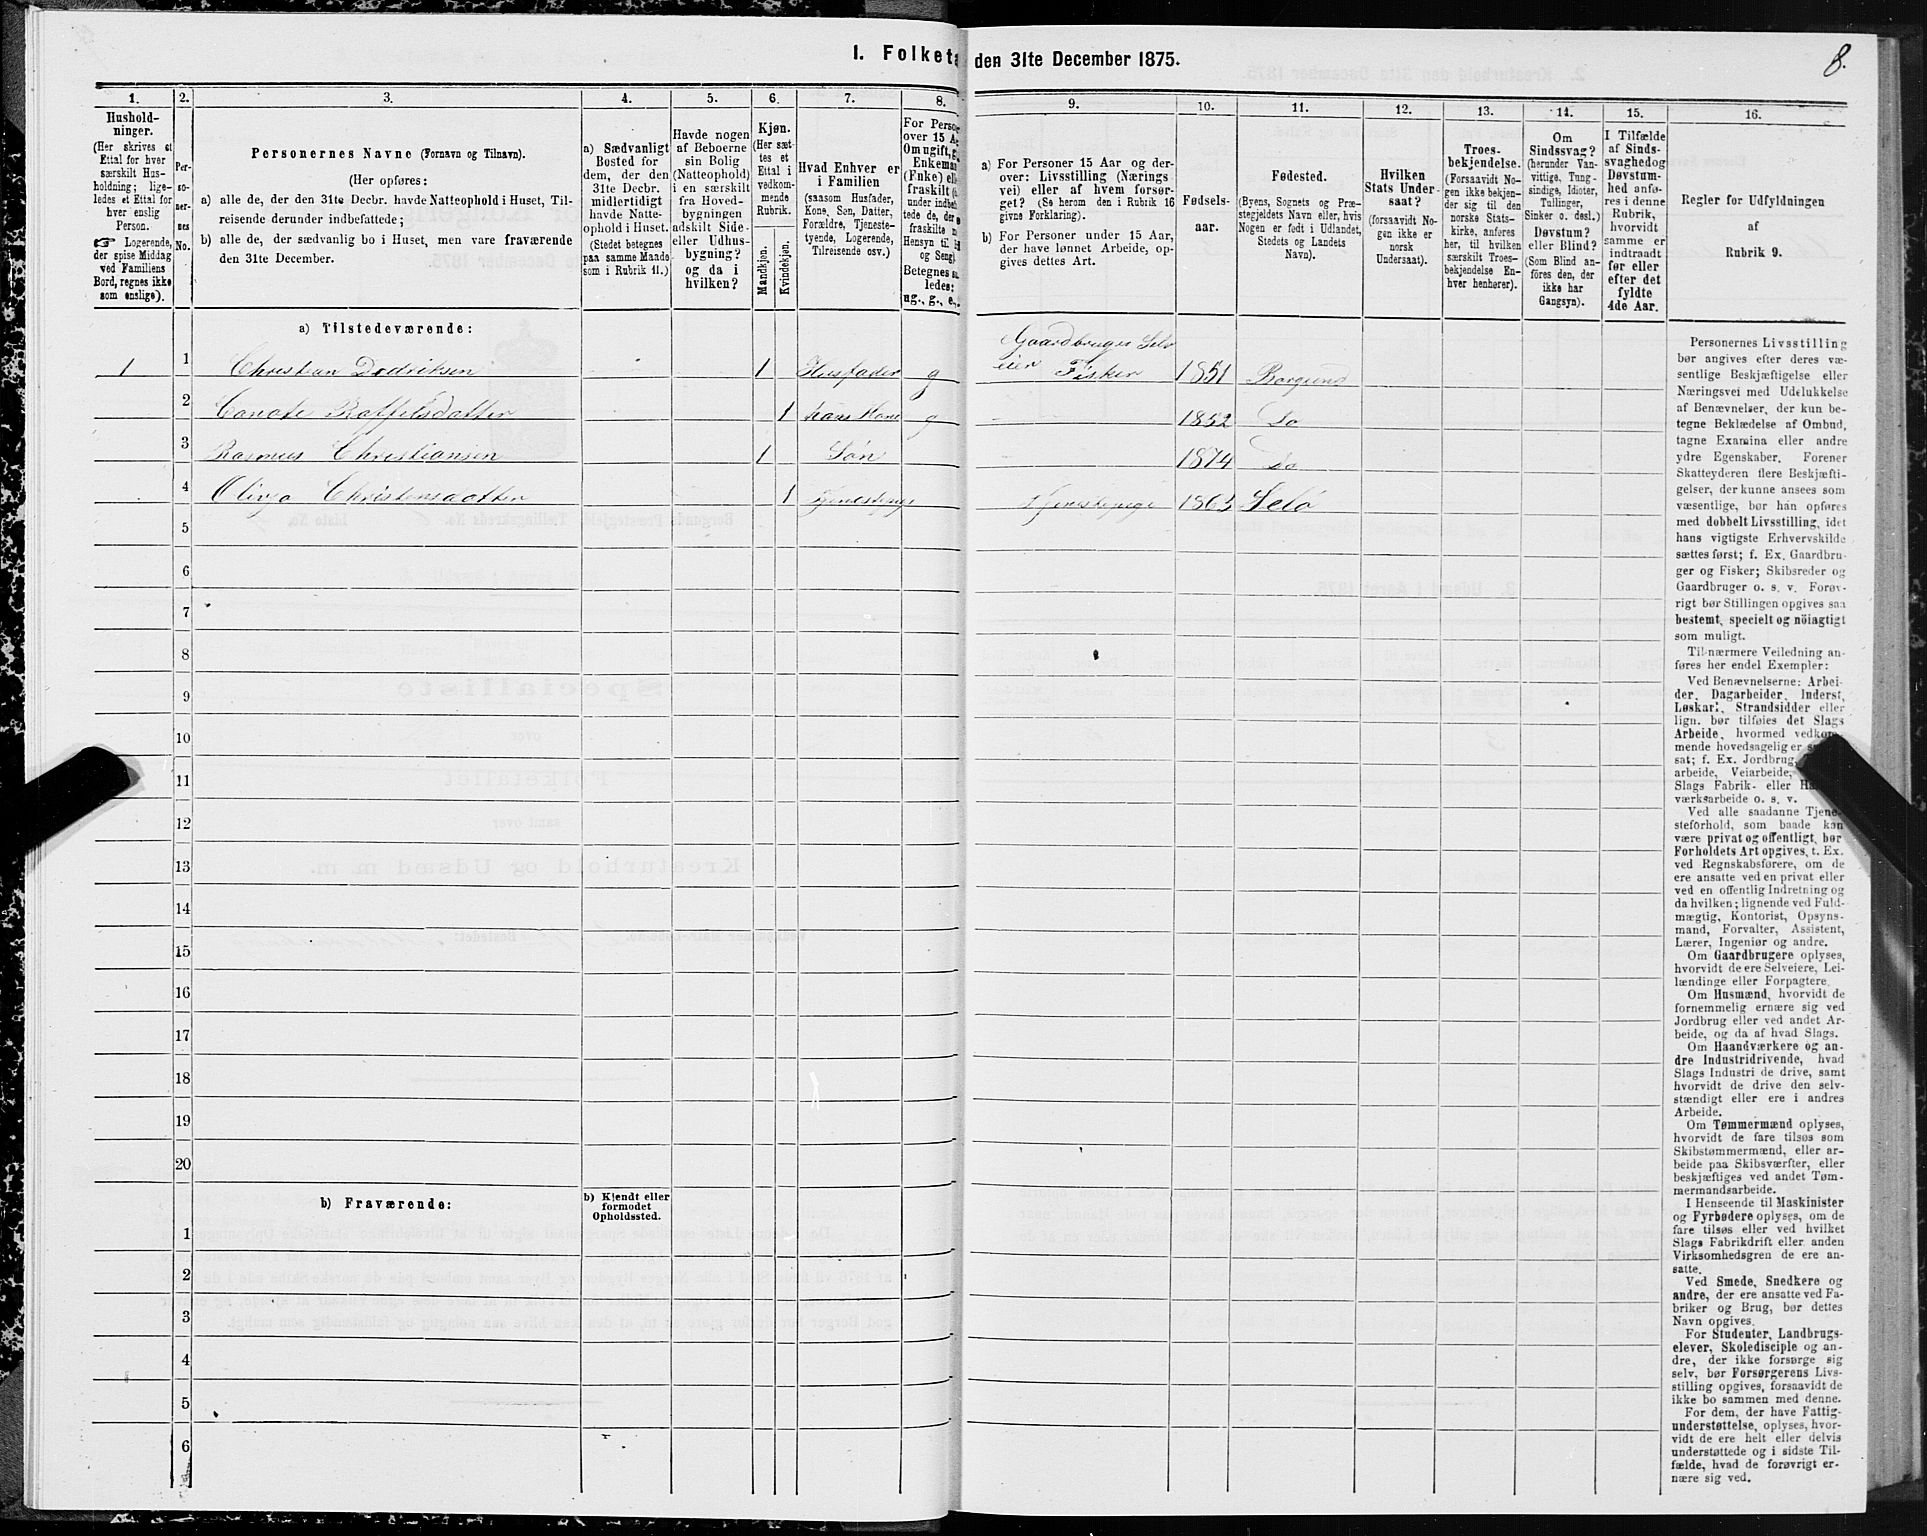 I. Folketæ den 31te December 1875.
8.
1. 2. 3. 4. 5. 6. 7. 8. 9. 10. 11. 12. 13. 14. 15. 16.
Hushold-
ninger.
(Her skrives et
Ettal for hver
særskilt Hus-
holdning; lige-
ledes et Ettal for
hver enslig
Person.
☞ Logerende,
der spise Middag
ved Familiens
Bord, regnes ikke
som enslige).
Per-
so-
ner-
nes
No.
Personernes Navne (Fornavn og Tilnavn).
(Her opføres:
a) alle de, der den 31te Decbr. havde Natteophold i Huset, Til-
reisende derunder indbefattede;
b) alle de, der sædvanlig bo i Huset, men vare fraværende
den 31te December.
a) Sædvanligt
Bosted for
dem, der den
31te Decbr.
midlertidigt
havde Natte-
ophold i Huset.
(Stedet betegnes
paa samme Maade
som i Rubrik 11.)
Havde nogen
af Beboerne
sin Bolig
(Natteophold)
i en særskilt
fra Hoved-
bygningen
adskilt Side-
eller Udhus-
bygning?
og da i
hvilken?
Kjøn.
(Her sæt-
tes et
Ettal i
vedkom-
mende
Rubrik.
Mandkjøn.
Kvindekjøn.
Hvad Enhver er
i Familien
(saasom Husfader,
Kone, Søn, Datter,
Forældre, Tjeneste-
tyende, Logerende,
Tilreisende osv.)
For Perso
over 15 A
Om ugift, g
Enkema
(Fnke) el
fraskilt (
under indbe
tede de, der
fraskilte
Hensyn til
og Seng
Betegnes s
ledes:
ug., g., e.,
a) For Personer 15 Aar og der-
over: Livsstilling (Nærings-
vei) eller af hvem forsør-
get? (Se herom den i Rubrik 16
givne Forklaring).
b) For Personer under 15 Aar,
der have lønnet Arbeide, op-
gives dettes Art.
Fødsels-
aar.
Fødested.
(Byens, Sognets og Præ-
stegjeldets Navn eller, hvis
Nogen er født i Udlandet,
Stedets og Landets
Navn).
Hvilken
Stats Under-
saat?
(forsaavidt No-
gen ikke er
norsk
Undersaat).
Troes-
bekjendelse.
(Forsaavidt No-
gen ikke bekjen-
der sig til den
norske Stats-
kirke, anføres
her, til hvilken
særskilt Troes-
bekjendelse En-
hver henhører).
Om
Sindssvag?
(herunder Van-
vittige, Tung-
sindige, Idioter,
Tullinger,
Sinker o. desl.)
Døvstum?
eller Blind?
(Som Blind an-
føres den, der
ikke har
Gangsyn).
I Tilfælde
af Sinds-
svaghedog
Døvstum-
hed anfø-
res i denne
Rubrik,
hvorvidt
samme er
indtraadt
før eller
efter det
fyldte
4de Aar.
Regler for Udfyldningen
af
Rubrik 9.
a) Tilstedeværende:
Gaardbruger Selv
1 1 Christian Dedriksen 1 Husfader g eier Fisker 1851 Borgund
2 Raffelsdatter 1 hans Kone g 1852 Do
3 Rasmus Christiansen 1 Søn 1874 Do
4 Christensdatter 1 Tjenestepige Tjenestepige 1863
5
6
7
8
9
10
11
12
13
14
15
16
17
18
19
20
b) Fraværende:
b) Kjendt eller
formodet
Opholdssted.
1
2
3
4
5
6
Personernes Livsstilling
bør angives efter deres væ-
sentlige Beskjæftigelse eller
Næringsvei med Udelukkelse
af Benævnelser, der kun be-
tegne Beklædelse af Ombud,
tagne Examina eller andre
ydre Egenskaber. Forener
Skatteyderen flere Beskjæfti-
gelser, der kunne ansees som
væsentlige, bør han opføres
med dobbelt Livsstilling, idet
hans vigtigste Erhvervskilde
sættes først; f. Ex. Gaardbru-
ger og Fisker; Skibsreder og
Gaardbruger o. s. v. Forøv-
rigt bør Stillingen opgives saa
bestemt, specielt og nöiagtigt
som muligt.
Til nærmere Veiledning an-
føres her endel Exempler:
Ved Benævnelserne: Arbei-
der, Dagarbeider, Inderst,
Løskarl, Strandsidder eller
lign. bør tilføies det Slags
Arbeide, hvormed vedkom-
mende hovedsagelig er
sat; f. Ex. Jordbrug,
arbeide, Veiarbeide,
Slags Fabrik- eller
værksarbeide o. s. v.
Ved alle saadanne Tjene-
steforhold, som baade kan
være privat og offentligt, bør
Forholdets Art opgives, t. Ex.
ved Regnskabsførere, om de
ere ansatte ved en privat eller
ved en offentlig Indretning og
da hvilken; lignende ved Fuld-
mægtig, Kontorist, Opsyns-
mand, Forvalter, Assistent,
Lærer, Ingeniør og andre.
Om Gaardbrugere oplyses,
hvorvidt de ere Selveiere, Lei-
lændinge eller Forpagtere.
Om Husmænd, hvorvidt de
fornemmelig ernære sig ved
Jordbrug eller ved andet Ar-
beide, og da af hvad Slags.
Om Haandværkere og an-
dre Industridrivende, hvad
Slags Industri de drive, samt
hvorvidt de drive den selv-
stændigt eller ere i andres
Arbeide.
Om Tømmermænd oplyses,
hvorvidt de fare tilsøs som
Skibstømmermænd, eller ar-
beide paa Skibsværfter, eller
beskjæftiges ved andet Tøm-
mermandsarbeide.
I Henseende til Maskinister
og Fyrbødere oplyses, om de
fare tilsøs eller ved hvilket
Slags Fabrikdrift eller anden
Virksomhedsgren de ere an-
satte.
Ved Smede, Snedkere og
andre, der ere ansatte ved Fa-
briker og Brug, bør dettes
Navn opgives.
For Studenter, Landbrugs-
elever, Skoledisciple og an-
dre, der ikke forsørge sig
selv, bør Forsørgerens Livs-
stilling opgives, forsaavidt de
ikke bo sammen med denne.
For dem, der have Fattig-
understøttelse, oplyses, hvor-
vidt de ere helt eller delvis
understøttede og i sidste Til-
fælde, hvad de forøvrigt er-
nære sig ved.